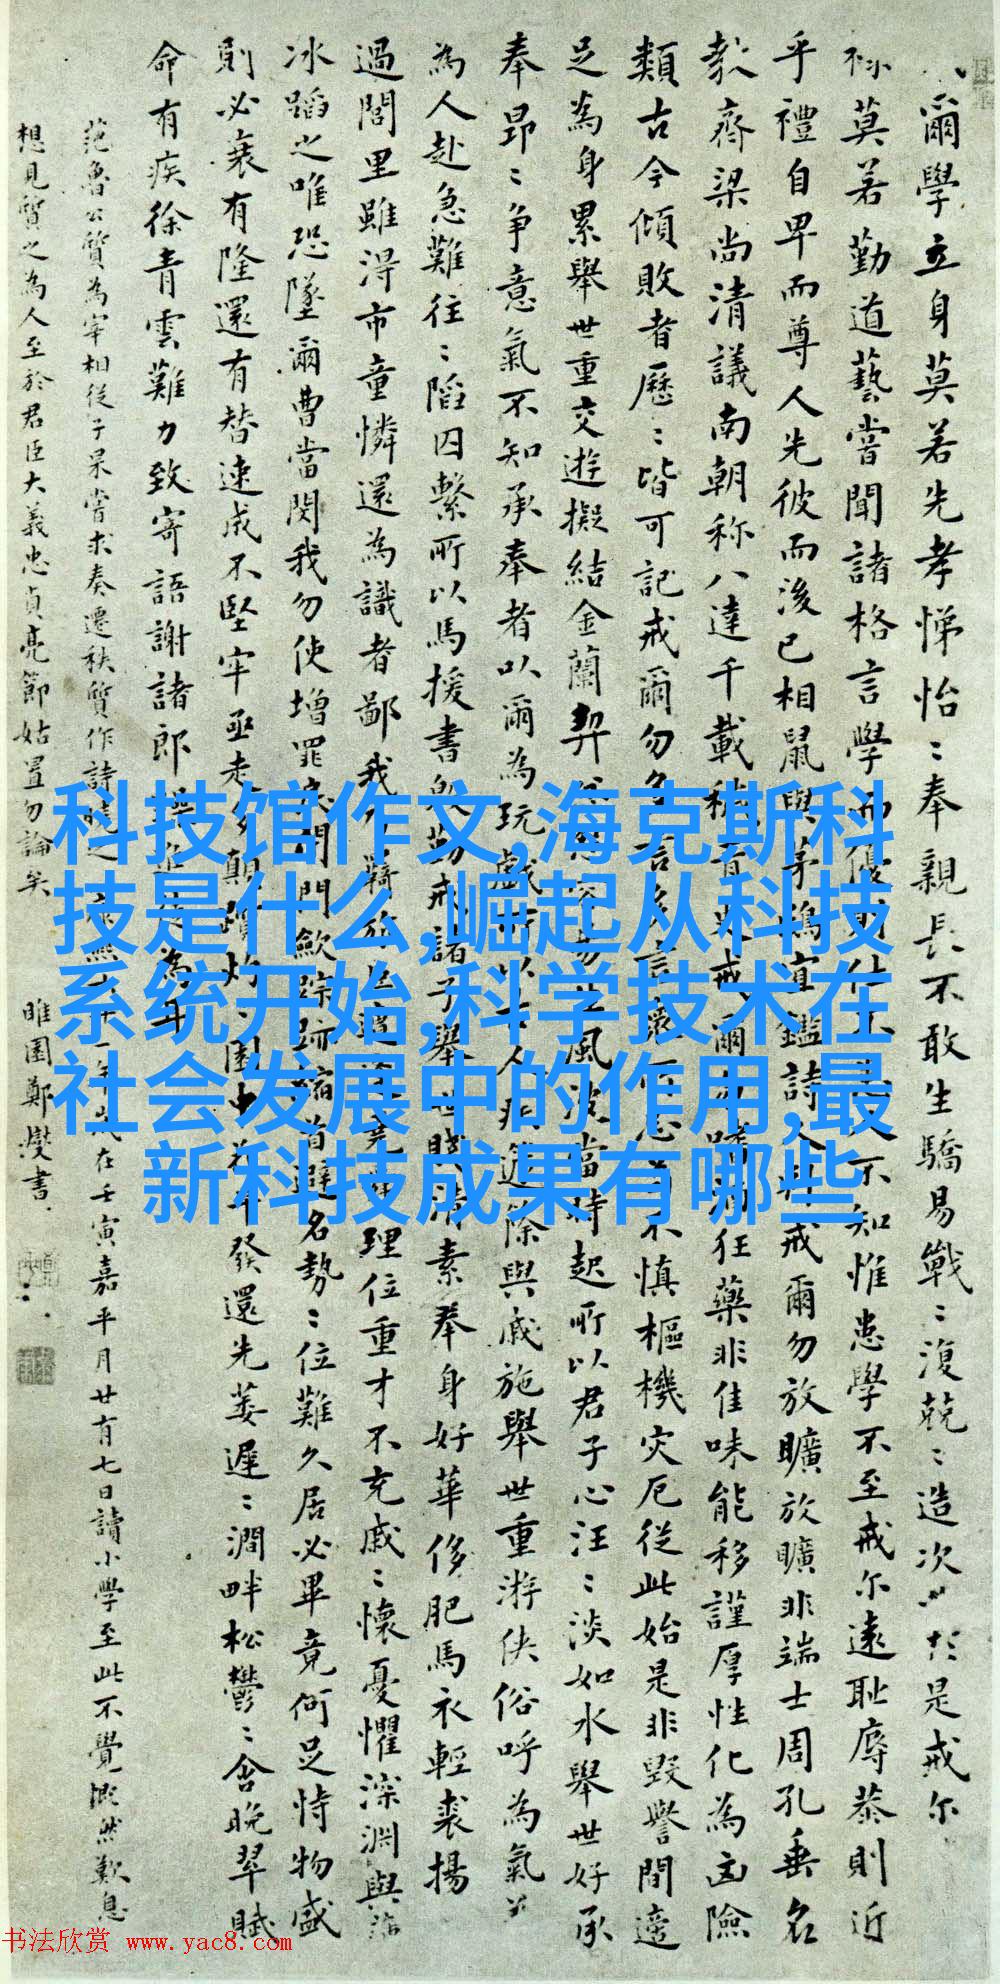 尔學立身莫若先孝悌怡〻奉親長不敢生驕易戰〻復兢〻造次於是戒尔
禄莫若勤道藝嘗聞諸格言學而優則仕不知惟患學不至戒尔遠恥辱恭則近
乎禮自卑而尊人先彼而後己相鼠與茅鴟宜鑑詩人戒爾勿放曠放曠非端士周孔垂名
教齊梁尚清議南朝称八達千載穢青史戒爾勿嗜酒狂藥非佳味能移謹厚性化為凶險
類古今傾敗者歷〻皆可記戒爾勿多言多言眾所忌不慎樞機灾厄從此始是非毀譽間適
足為身累舉世重交遊擬結金蘭契風波當時起所以君子心汪〻淡如水舉世好承
奉昂〻争意氣不知承奉者以爾為玩戲所以古人疾籧篨與戚施舉世重游俠俗呼為氣
為人赴急難往〻陷囚繫所以馬援書勤戒諸子舉世賤清素奉身好華侈肥馬衣輕裘揚
過閭里雖得市童憐還為識者鄙我理位重才不充戚〻懷憂懼深淵與
冰蹈之唯恐墜爾曹當閔我勿使增罪戾閉門歛踪跡縮首避名勢〻位難久居必畢竟何足恃物盛
則必衰有隆還有替速成不堅牢亟走多顛躓灼〻園中花早發還先萎遲〻澗畔松鬱〻含晚翠賦
命有疾徐青雲難力致寄語謝諸郎躁進徒為耳
范魯公質為宰相從子杲嘗求奏遷秩質作詩曉之在壬寅嘉平月廿有七日讀小學至此不覺慨然歎息
想見質之為人至於君臣大義忠貞亮節姑置勿論矣 睢園鄭燮書
科技馆作文,海克斯科
技是什么,崛起从科技
系统开始,科学技术在
社会发展中的作用,最
新科技成果有哪些
书法欣赏 www.yac8.com